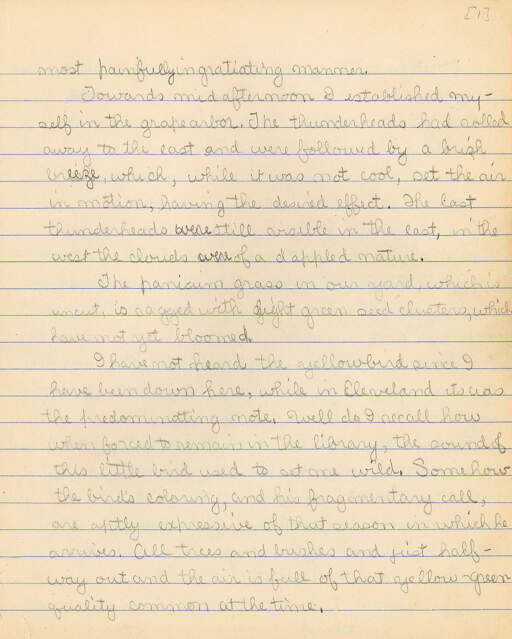 [1]
most painfully ingratiating manner.
Towards mid afternoon I established my-
self in the grape arbor. The thunderheads had rolled
away to the east and were followed by a brisk
breeze, which, while it was not cool, set the air
in motion, having the desired effect. The last
thunderheads were still visible in the east, in the
west the clouds were of a dappled nature.
The panicum grass in our yard, which is
uncut, is ragged with light green seed clusters, which
have not yet bloomed.
I have not heard the yellowbird since I
have been down here, while in Cleveland its was
the predominatting note. Well do I recall how
when forced to remain in the library, the sound of
this little bird used to set me wild. Somehow
the birds coloring, and his fragmentary call,
are aptly expressive of that season in which he
arrives. All trees and bushes and just half-
way out and the air is full of that yellow-green
quality common at the time.